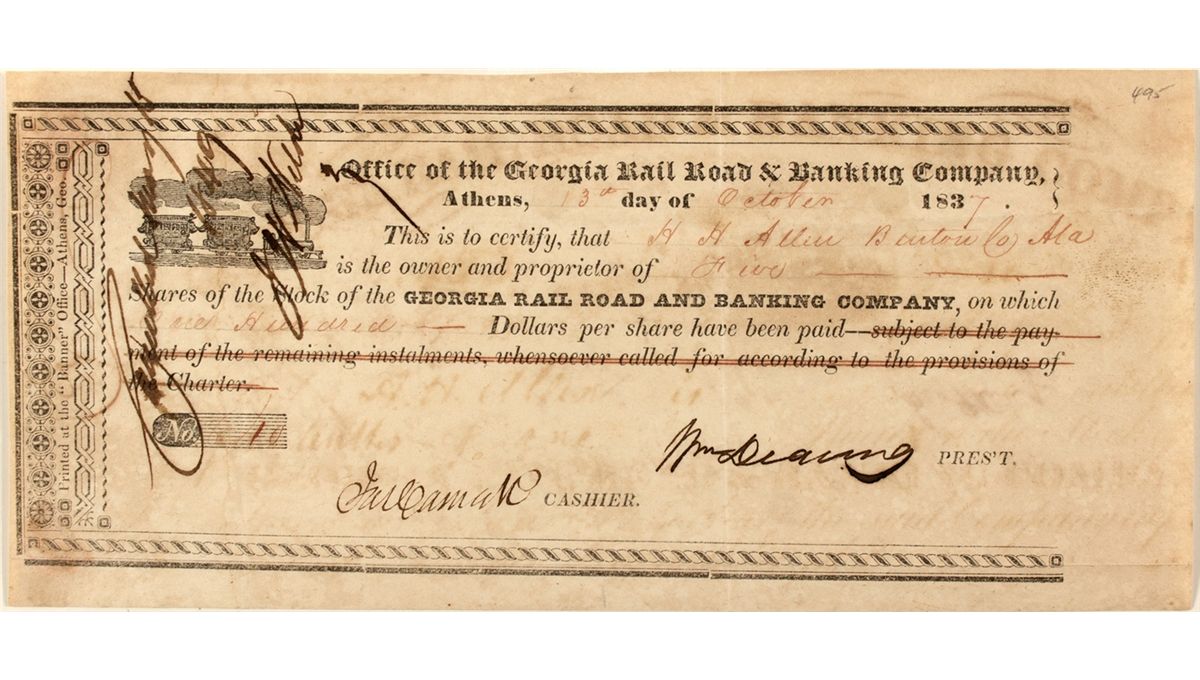 495
Office of the Georgia Rail Road & Banking Company,
Athens, 13th day of October 1837.
This is to certify, that H H Allen Benton Co Ala
is the owner and proprietor of Five
Shares of the Stock of the GEORGIA RAIL ROAD AND BANKING COMPANY, on which
One Hundred Dollars per share have been paid—subject to the pay-
ment of the remaining instalments, whensoever called for according to the provisions of
the Charter.
No. 10
Wm Dearing PRES'T.
Jas Camak CASHIER.
Printed at the "Banner" Office—Athens, Geo.